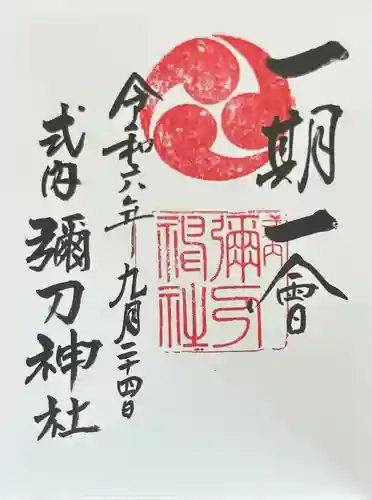 一期一會
令和六年九月二十四日
式内彌刀神社
式内彌刀神社